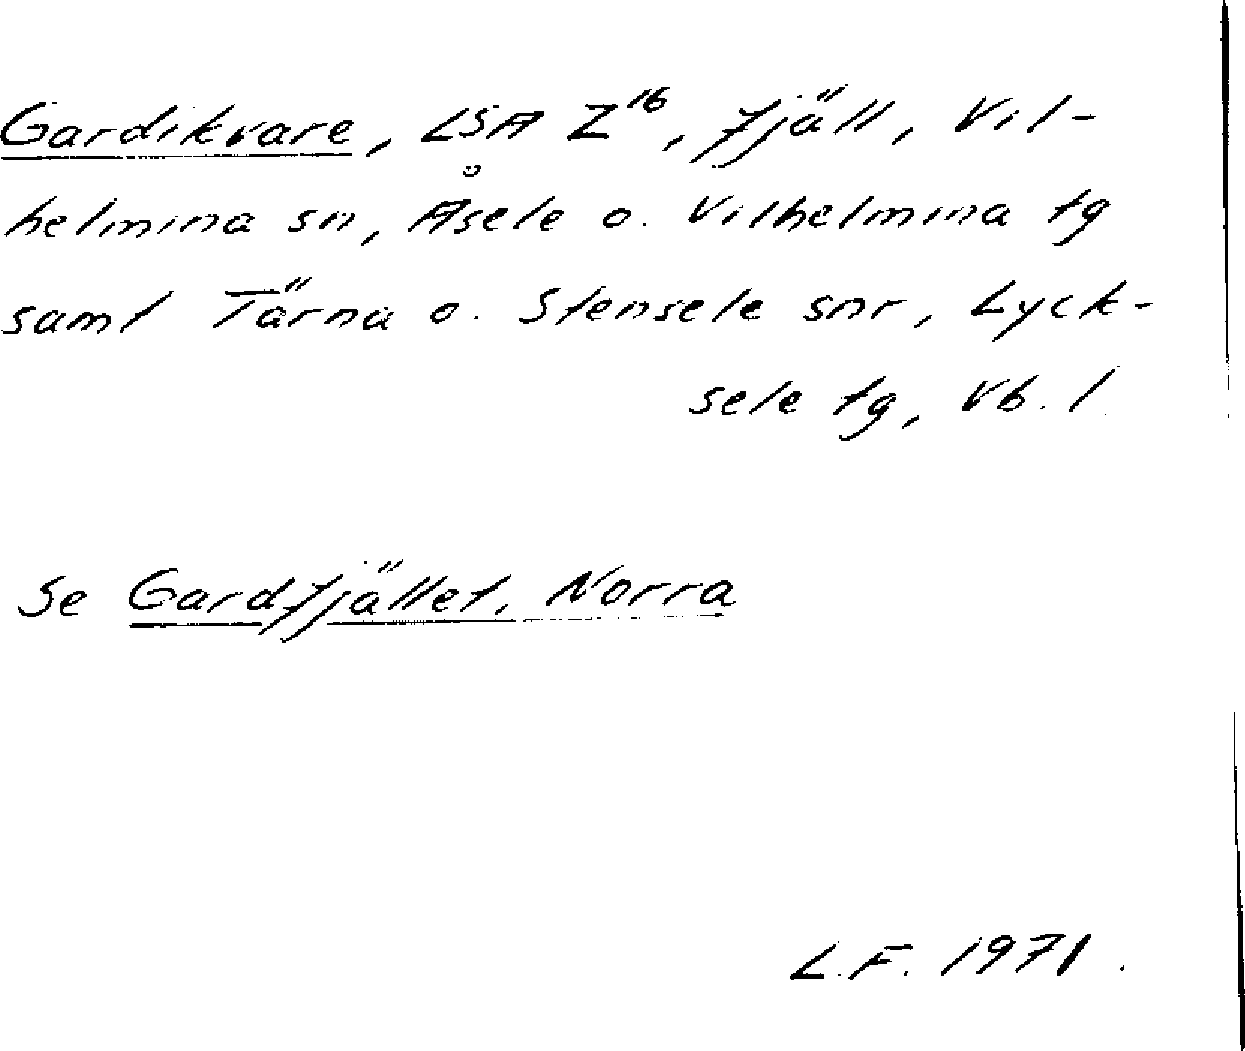 Gardikvare, LSA Z¹⁶, fjäll, Vil-
helmina sn, Åsele o. Vilhelmina tg
samt Tärna o. Stensele snr, Lyck-
sele tg, Vb. l.
Se Gardfjället, Norra
L.F. 1971.